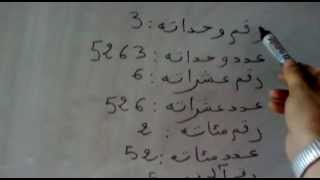 رقم وحداته : 3
عدد وحداته : 5263
رقم عشراته : 6
عدد عشراته : 526
رقم مئاته : 2
عدد مئاته : 52